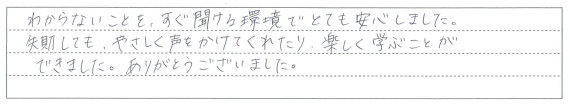 わからないことを、すぐ聞ける環境でとても安心しました。
失敗しても、やさしく声をかけてくれたり、楽しく学ぶことが
できました。ありがとうございました。